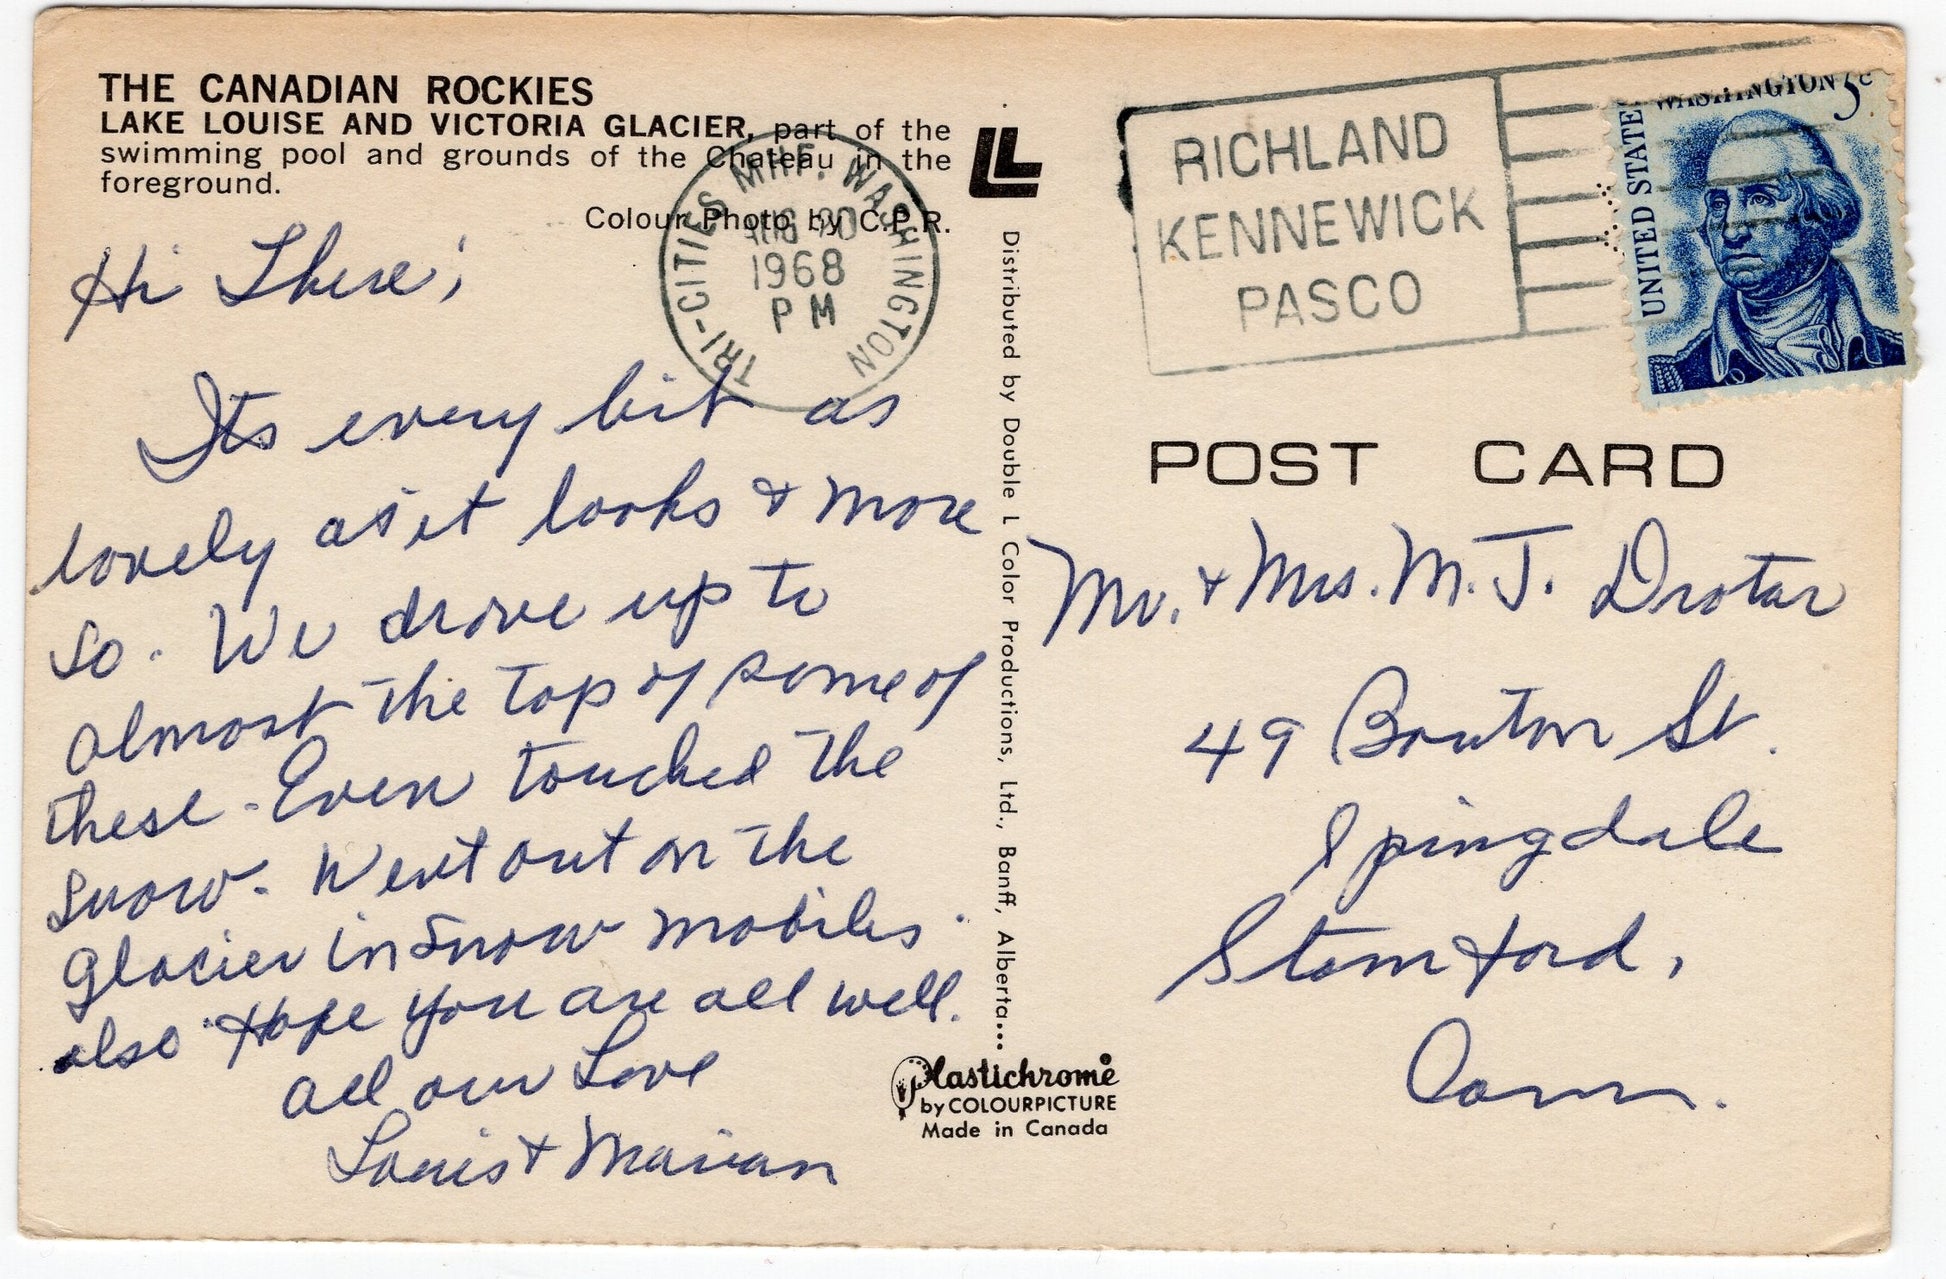 THE CANADIAN ROCKIES
LAKE LOUISE AND VICTORIA GLACIER, part of the
swimming pool and grounds of the Chateau in the
foreground.
Colour Photo by C.P.R.
Hi There;
Its every bit as
lovely as it looks & more
so. We drove up to
almost the top of some of
these. Even touched the
snow. Went out on the
glacier in snow mobiles
also. Hope you are all well.
all our Love
Louis & Marian
TRI-CITIES MHF. WASHINGTON
AUG 20
1968
PM
Distributed by Double L Color Productions, Ltd., Banff, Alberta...
Plastichrome
by COLOURPICTURE
Made in Canada
RICHLAND
KENNEWICK
PASCO
UNITED STATES
WASHINGTON 5c
POST CARD
Mr. & Mrs. M. J. Drotar
49 Bouton St.
Spingdale
Stamford,
Conn.